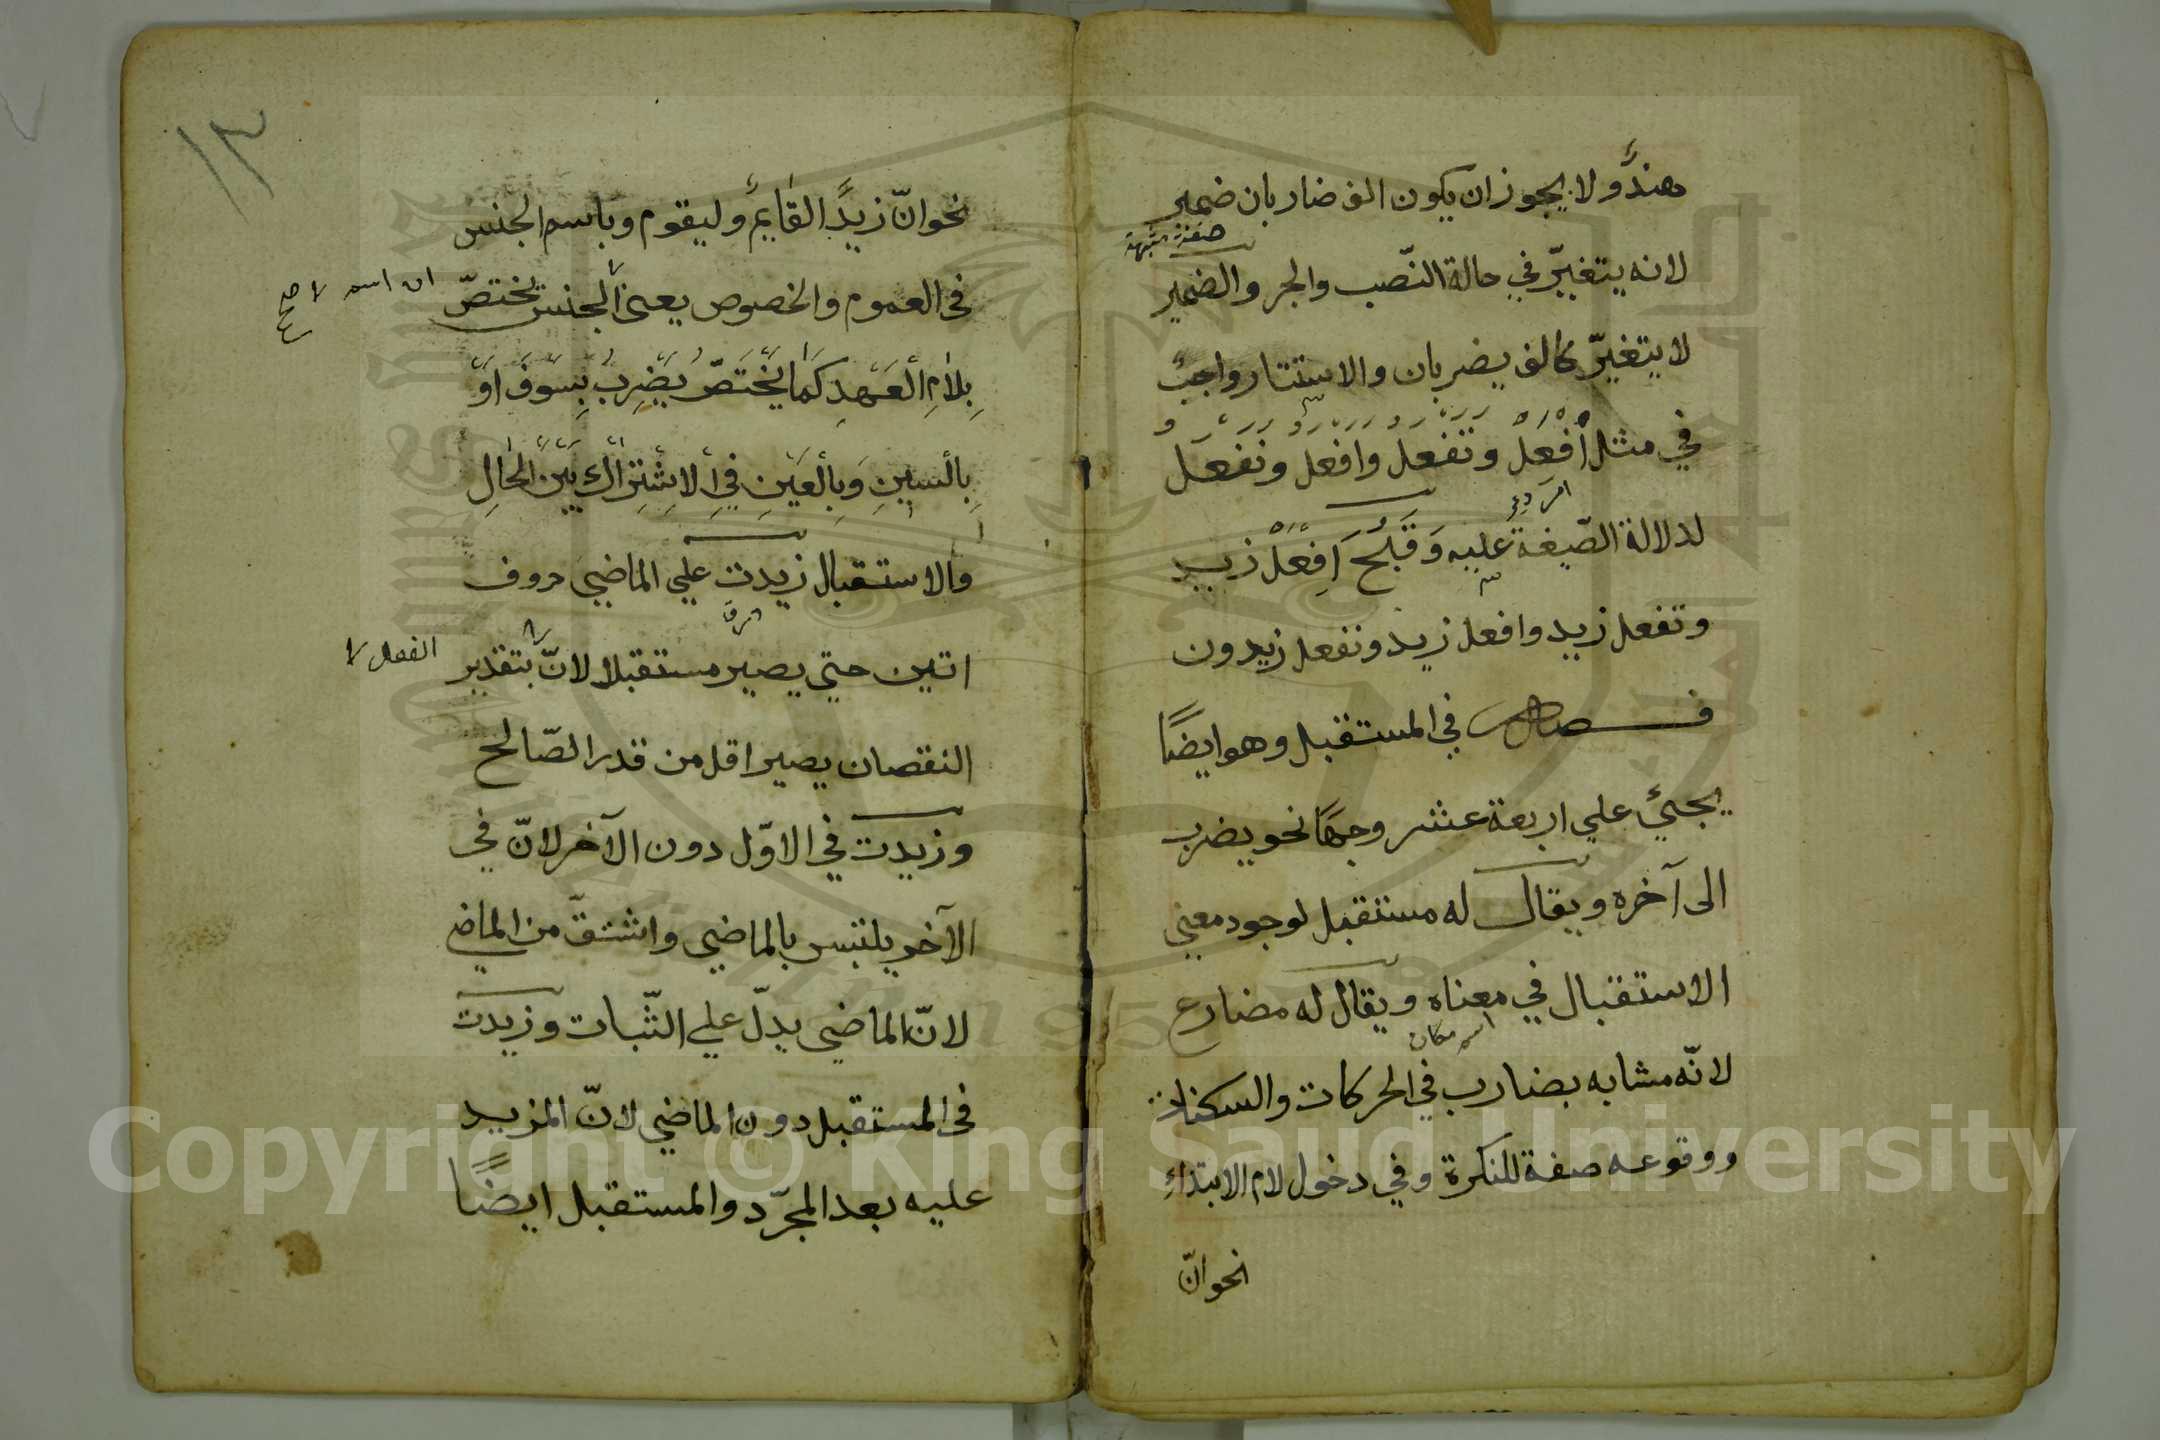 هندٌ ولا يجوز ان يكون الف ضاربان ضمير
صفة مشبهة
لانه يتغيّر في حالة النّصب والجر والضمير
لا يتغيّر كالف يضربان والاستتار واجبٌ
في مثل اَفْعَلْ وتَفعل وافعل ونفعل
لدلالة الصّيغة عليه وَقَبُحَ اِفعَلْ زيد
وتفعل زيد وافعل زيد ونفعل زيدون
فصل في المستقبل وهو ايضًا
يجيئ علي اربعة عشر وجهًا نحو يضرب
الى آخره ويقال له مستقبل لوجود معني
الاستقبال في معناه ويقال له مضارع
اسم مكان
لانّه مشابه بضارب في الحركات والسكنات
ووقوعه صفة للنكرة وفي دخول لام الابتداءِ
نحو انّ
١٣
نحو انّ زيدًا لقايمٌ وليقوم وباسم الجنس
في العموم والخصوص يعني الجنس يختصّ
ان اسم صح
بِلامِ الْعَهدِ كَمَا يَخْتَصُّ يَضْرِبُ بِسَوْفَ اَوْ
بِالسِينِ وَبِالْعَيْنِ فِي الْاِشْتِرَاكِ بَيْنَ الحَالِ
والاستقبال زيدت علي الماضي حروف
اتين حتي يصير مستقبلا لانّ بتقدير
الفعل
النقصان يصير اقل من قدر الصّالح
وزيدت في الاوّل دون الآخر لانّ في
الآخر يلتبس بالماضي واشتقّ من الماضي
لانّ الماضي يدلّ علي الثّبات وزيدت
في المستقبل دون الماضي لانّ المزيد
عليه بعد المجرّد والمستقبل ايضًا
Copyright © King Saud University